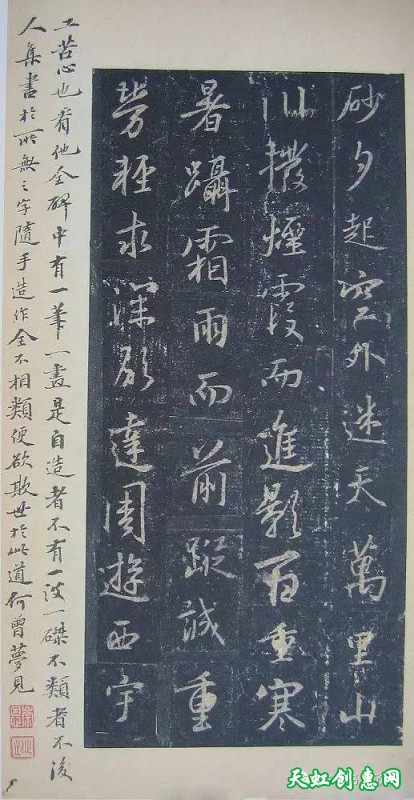 砂夕起空外迷天萬里山
川撥煙霞而進影百重寒
暑躡霜雨而前蹤誠重
勞輕求深願達周遊西宇
工苦心也看他全碑中有一筆一畫是自造者不有一波一磔不類者不後
人集書於所無之字隨手造作全不相類便欲欺世於此道何曾夢見
天虹创惠网